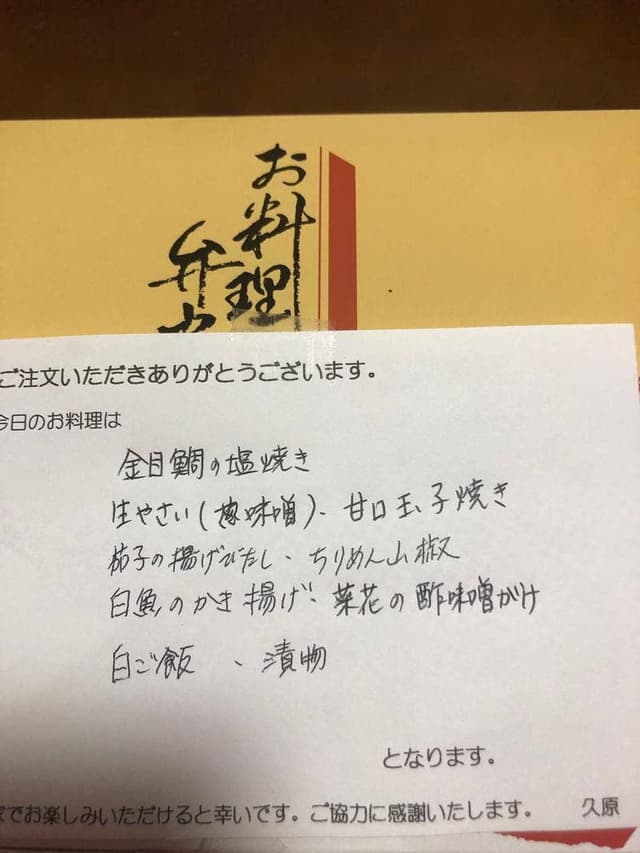 お料理
弁
ご注文いただきありがとうございます。
今日のお料理は
金目鯛の塩焼き
生やさい(嫁味噌)、甘口玉子焼き
茄子の揚げびたし、ちりめん山椒
白魚のかき揚げ、菜花の酢味噌がけ
白ご飯、漬物
となります。
でお楽しみいただけると幸いです。ご協力に感謝いたします。 久原